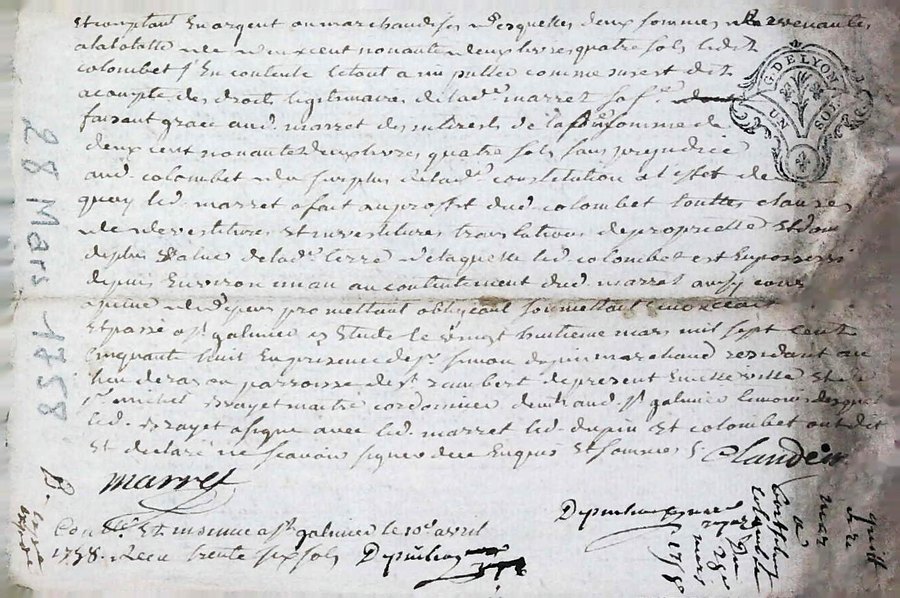 et comptant en argent ou marchandises desquelles deux sommes revenantes
a la totalle de deux cent nonante deux livres quatre sols led.t
colombet s'en contente le tout a imputter comme sus est dit
acompte des droits legitimaires de lad.e marret sa f.e
faisant grace aud. marret des interests de la somme de
deux cent nonante deux livres quatre sols sans prejudice
aud colombet du surplus de lad.e constitution a l'effet de
quoy led. marret a fait au proffit dud colombet touttes clauses
de devestitures et investitures translations de proprietté et don
de plus value de lad.e terre de laquelle led. colombet est en possession
depuis environ un an au contentement dud. marret
peine de depens promettant obligeant soumettant renonceant
et passé a s.t galmier es etude le vingt huitieme mars mil sept cent
cinquante huit en presence de s.r simon dupuy marchand residant au
lieu de parroisse de s.t rambert de present en cette ville et
s.r michel brayet maitre cordonnier dud s.t galmier temoins desquels
led. brayet a signé avec led. marret led. dupuy et colombet ont dit
et declaré ne scavoir signer de ce enquis et sommes
marret
Con.lé et insinué a s.t galmier le 10.e avril
1758. Recu trente six sols
G. DE LYON
UN SOL
28 Mars 1758
28 mars 1758